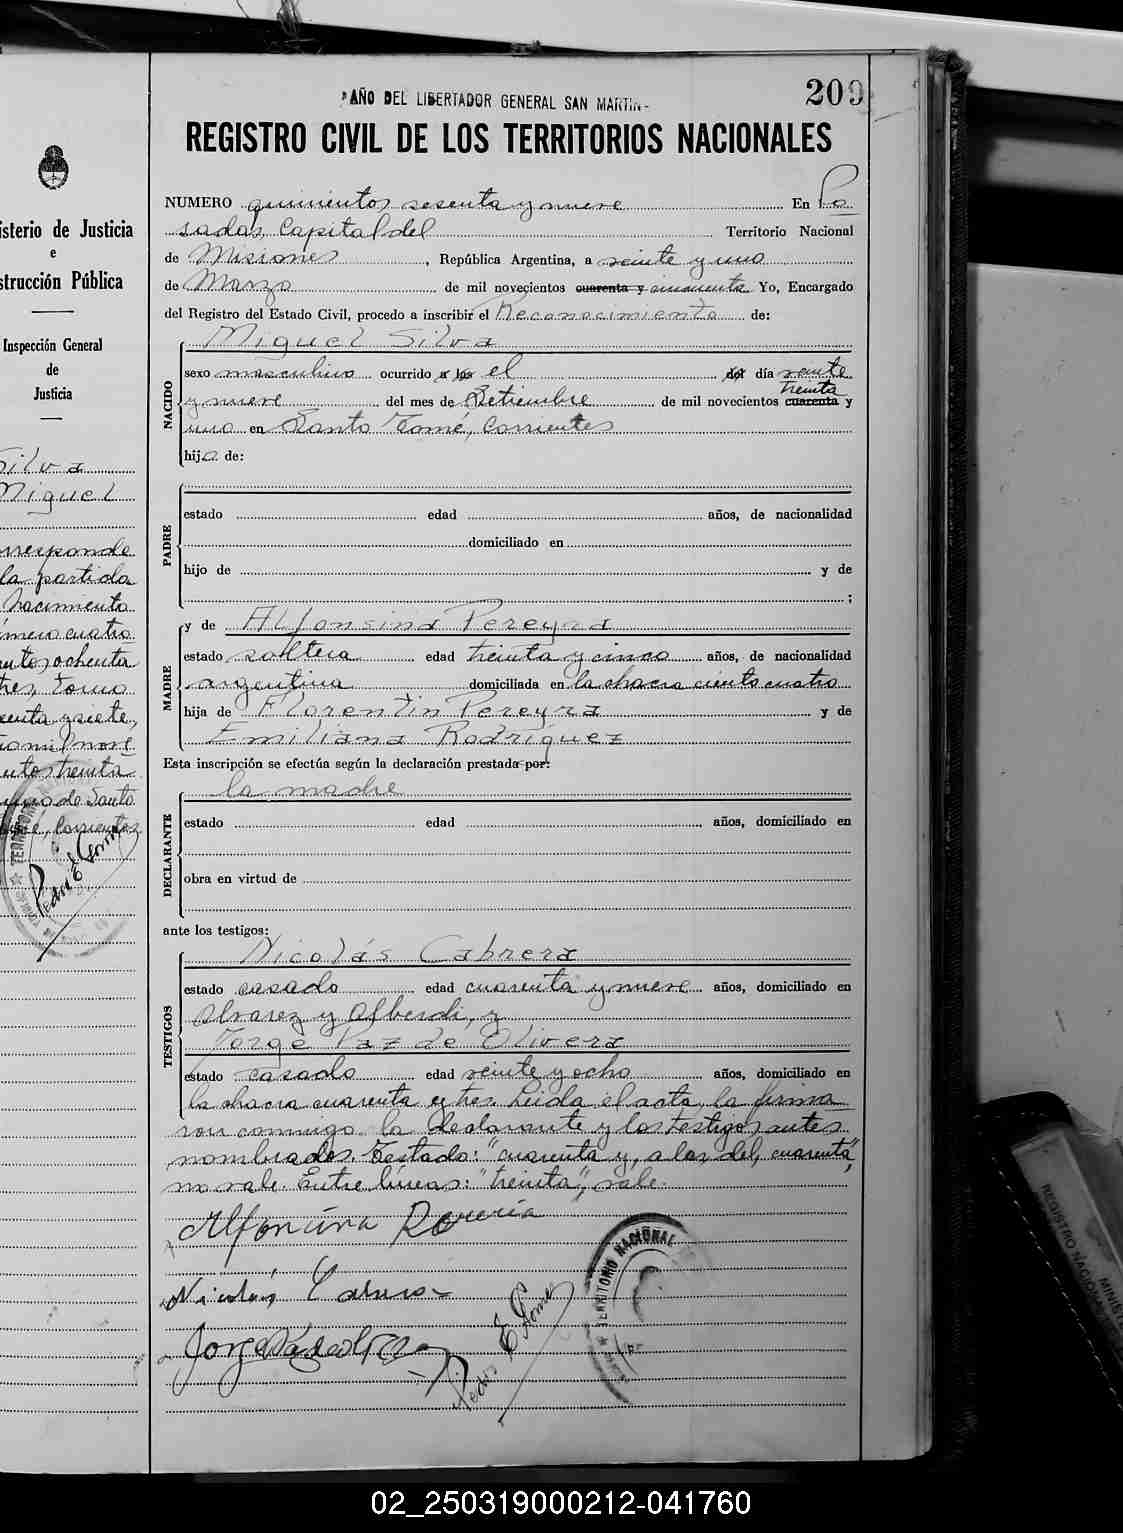 "AÑO DEL LIBERTADOR GENERAL SAN MARTIN"
209
REGISTRO CIVIL DE LOS TERRITORIOS NACIONALES
isterio de Justicia
e
strucción Pública
Inspección General
de
Justicia
Silva
Miguel
rresponde
la partida
nacimiento
úmero cuatro
ntos ochenta
tres, tomo
y siete,
mil nove
entos treinta
uno de Santo
Corrientes
NUMERO quinientos sesenta y nueve En Po
sadas, Capital del Territorio Nacional
de Misiones, República Argentina, a veinte y uno
de Marzo de mil novecientos cuarenta y cincuenta Yo, Encargado
del Registro del Estado Civil, procedo a inscribir el Reconocimiento de:
Miguel Silva
NACIDO
sexo masculino ocurrido a las el del día veinte
treinta
y nueve del mes de Setiembre de mil novecientos cuarenta y
uno en Santo Tomé, Corrientes
hijo de:
PADRE
estado edad años, de nacionalidad
domiciliado en
hijo de y de
;
MADRE
y de Alfonsina Pereyra
estado soltera edad treinta y cinco años, de nacionalidad
argentina domiciliada en la chacra ciento cuatro
hija de Florentin Pereyra y de
Emiliana Rodríguez
Esta inscripción se efectúa según la declaración prestada por:
DECLARANTE
la madre
estado edad años, domiciliado en
obra en virtud de
ante los testigos:
TESTIGOS
Nicolás Cabrera
estado casado edad cuarenta y nueve años, domiciliado en
Alvarez y Alberdi, y
Jorge Paz de Olivera
estado casado edad veinte y ocho años, domiciliado en
la chacra cuarenta y tres. Leida el acta, la firma
ron conmigo la declarante y los testigos antes
nombrados. Testado: "cuarenta y, a las, del, cuarenta",
no vale. Entre líneas: "treinta", vale.
Alfonsina
Nicolás
Jorge
Pedro E
TERRITORIO NACIONAL
REGISTRO NACIONAL
MINIST
02_250319000212-041760